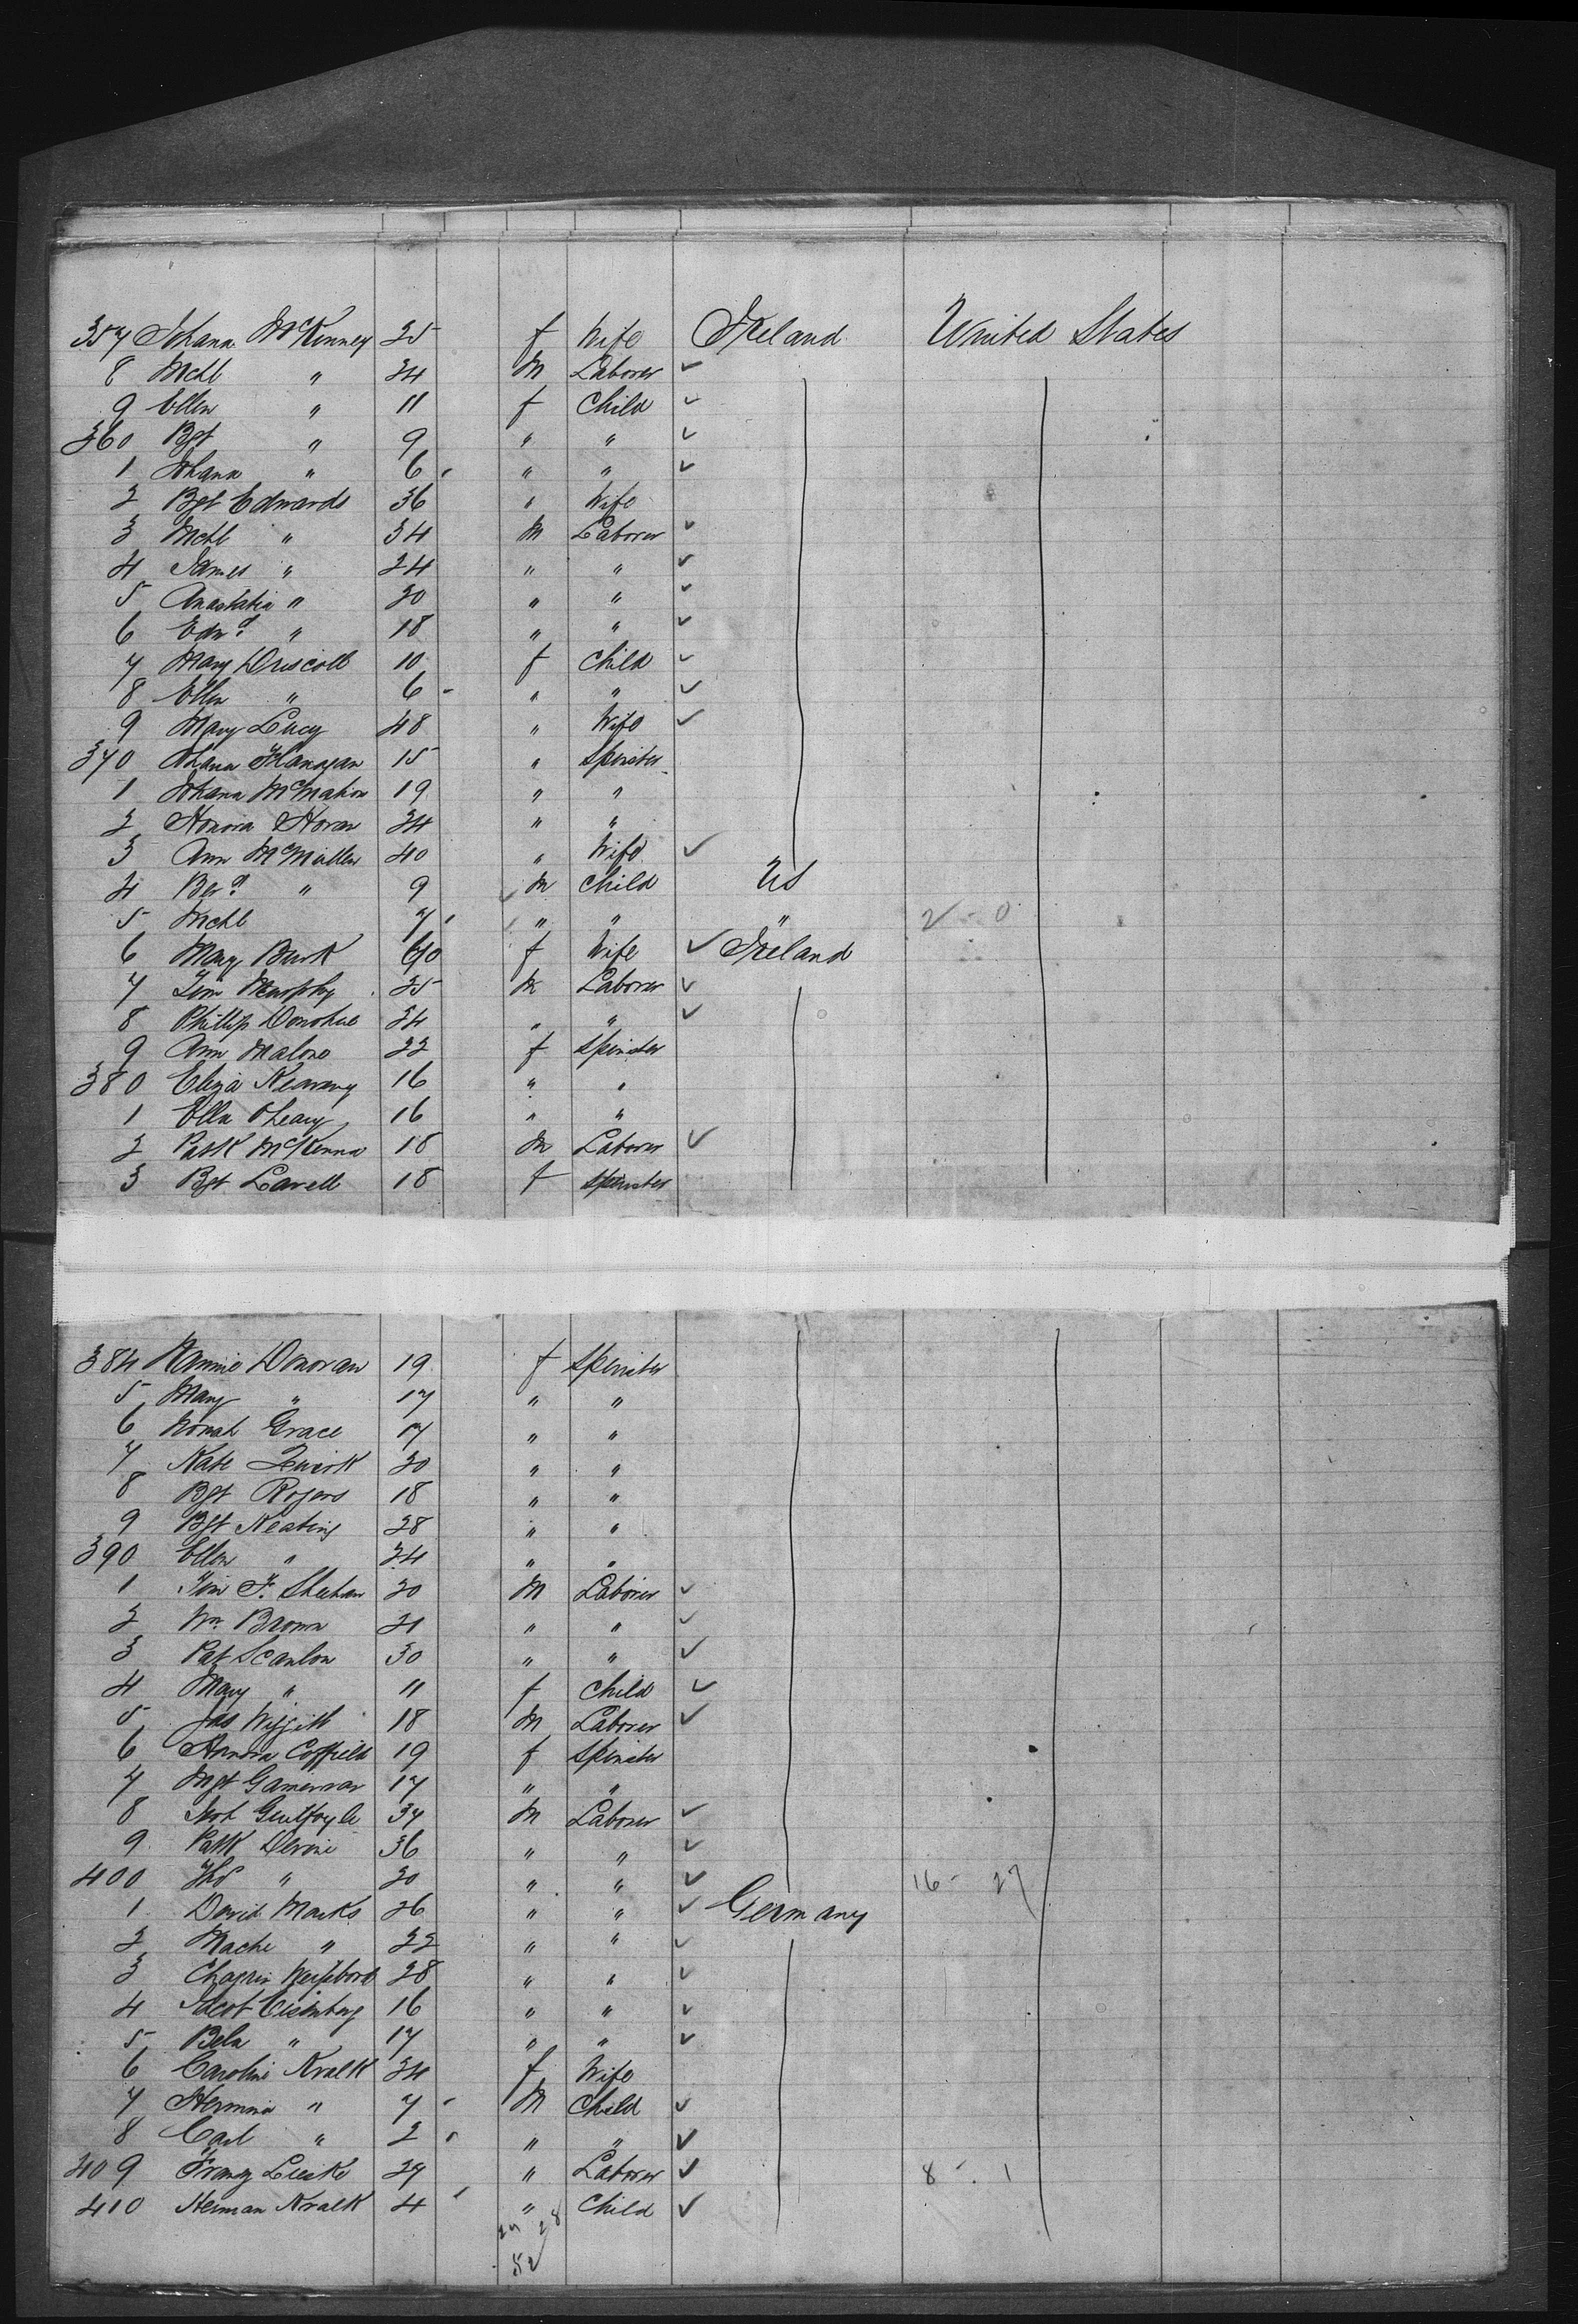 357 Johana McKinney 25 f Wife Ireland United States
8 Mchl " 24 M Laborer ✓
9 Ellen " 11 f Child ✓
360 Bgt " 9 " " ✓
1 Johana " 6 " " ✓
2 Bgt Edwards 36 " Wife
3 Mchl " 34 M Laborer ✓
4 James " 24 " " ✓
5 Anastatia " 20 " " ✓
6 Edwd " 18 " " ✓
7 Mary Driscoll 10 f Child ✓
8 Ellen " 6 " " ✓
9 Mary Lucy 48 " Wife ✓
370 Johana Flanagan 15 " Spinster
1 Johana McMahon 19 " "
2 Honora Horan 24 " "
3 Ann McMullen 40 " Wife ✓
4 Berd " 9 M Child US
5 Mchl 7 " " " 2 - 0
6 Mary Burk 60 f Wife ✓ Ireland
7 Tim Murphy 25 M Laborer ✓
8 Phillip Donohue 24 " " ✓
9 Ann Malone 22 f Spinster
380 Eliza Kearney 16 " "
1 Ellen OLeary 16 " "
2 Patk McKenna 18 M Laborer ✓
3 Bgt Lavell 18 f Spinster
384 Nannie Donovan 19 f Spinster
5 Mary " 17 " "
6 Norah Grace 17 " "
7 Kate Quirk 20 " "
8 Bgt Rogers 18 " "
9 Bgt Keating 28 " "
390 Ellen " 24 " "
1 Tim F. Sheehan 20 M Laborer ✓
2 Wm Brown 21 " " ✓
3 Pat Scanlon 30 " " ✓
4 Mary " 11 f Child ✓
5 Jas 18 M Laborer ✓
6 Honora Coffield 19 f Spinster
7 Mgt 17 " "
8 Guilfoyle 34 M Laborer ✓
9 Patk Devine 36 " " ✓
400 Thos " 20 " " ✓ 16 - 27
1 David Marks 26 " " ✓ Germany
2 Mache " 22 " " ✓
3 28 " " ✓
4 Jacob Eisenberg 16 " " ✓
5 Bela " 17 " " ✓
6 Caroline Kralk 24 f Wife
7 Hermina " 7 M Child ✓
8 Carl " 2 " " ✓
409 Franz Lieske 29 " Laborer ✓ 8 - 1
410 Herman Kralk 4 " Child ✓
24 28
52